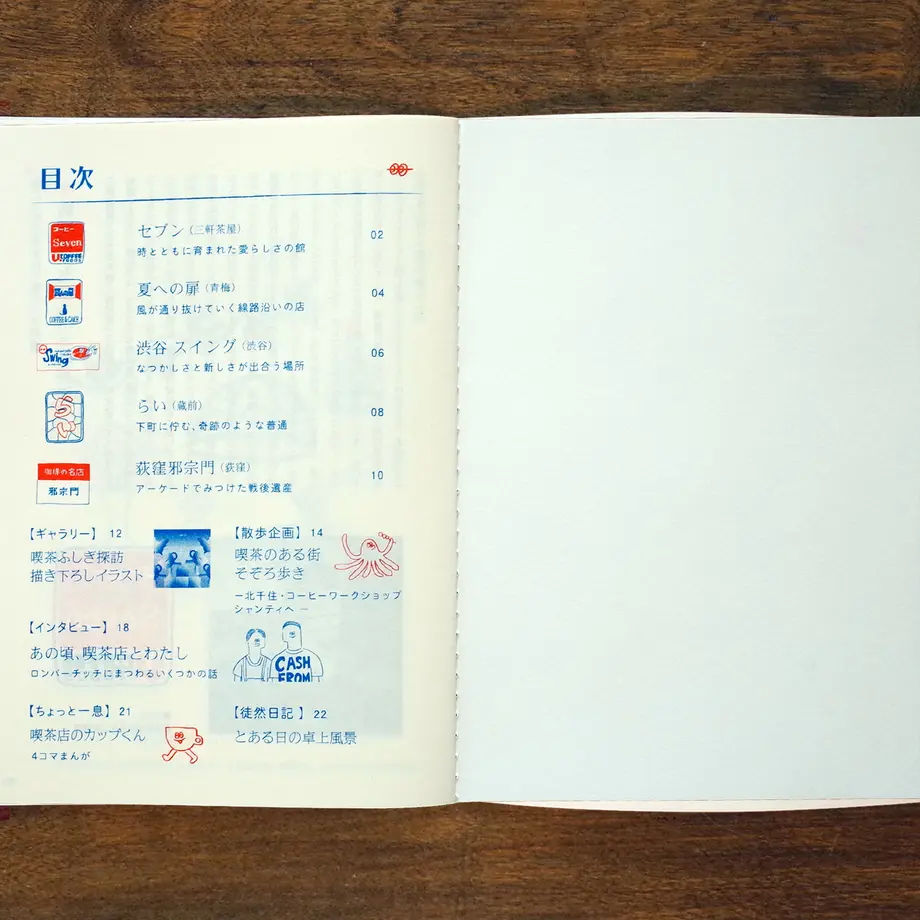 目次
コーヒー
Seven
UCOFFEE
セブン（三軒茶屋）
02
時とともに育まれた愛らしさの館
COFFEE & CAKE
夏への扉（青梅）
04
風が通り抜けていく線路沿いの店
Swing
渋谷 スイング（渋谷）
06
なつかしさと新しさが出合う場所
らい
らい（蔵前）
08
下町に佇む、奇跡のような普通
珈琲の名店
邪宗門
荻窪邪宗門（荻窪）
10
アーケードでみつけた戦後遺産
【ギャラリー】 12
喫茶ふしぎ探訪
描き下ろしイラスト
【散歩企画】 14
喫茶のある街
そぞろ歩き
ー北千住・コーヒーワークショップ
シャンティへ ー
【インタビュー】 18
あの頃、喫茶店とわたし
ロンパーチッチにまつわるいくつかの話
CASH
FROM
【ちょっと一息】 21
喫茶店のカップくん
4コマまんが
【徒然日記 】 22
とある日の卓上風景